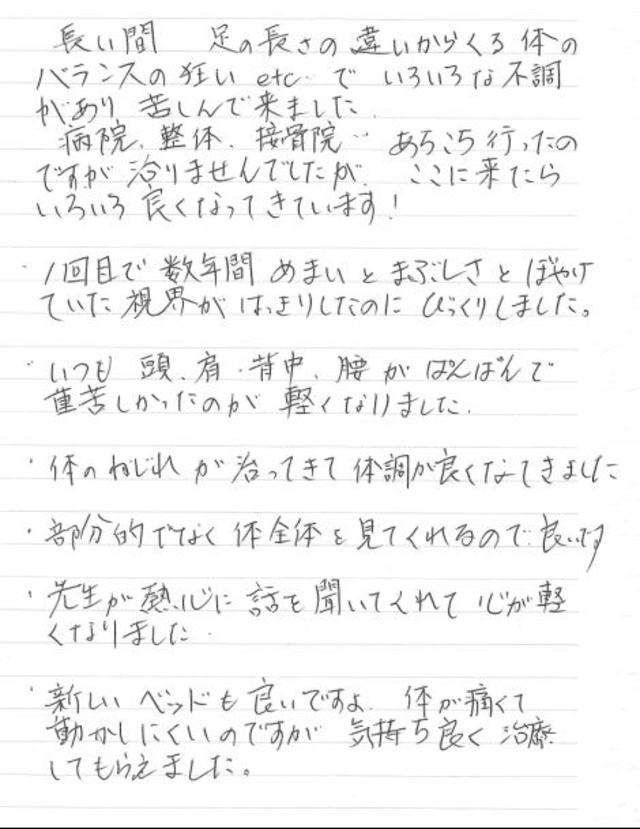 長い間 足の長さの違いからくる体の
バランスの狂い etc… で いろいろな不調
があり 苦しんで来ました.
病院、整体、接骨院… あちこち行ったの
ですが 治りませんでしたが、ここに来たら
いろいろ良くなってきています!
・1回目で数年間めまいとまぶしさとぼやけ
ていた視界がはっきりしたのにびっくりしました。
・いつも 頭、肩、背中、腰がぱんぱんで
重苦しかったのが 軽くなりました.
・体のねじれが治ってきて体調が良くなてきました
・部分的でなく体全体を見てくれるので良いです
・先生が熱心に話を聞いてくれて 心が軽
くなりました.
・新しいベッドも良いですよ. 体が痛くて
動かしにくいのですが 気持ち良く治療
してもらえました。